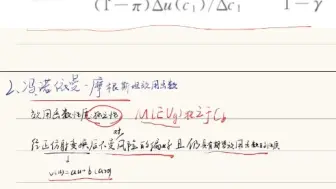 (1-π)Δu(c₁)/Δc₁ 1-γ
2.冯诺依曼-摩根斯坦效用函数
效用函数性质独立性 M(已Ug)独立于Cb
经正仿射变换后不变风险的偏好 且仍具有期望效用函数的性质
v(u)=au+b (a>0)